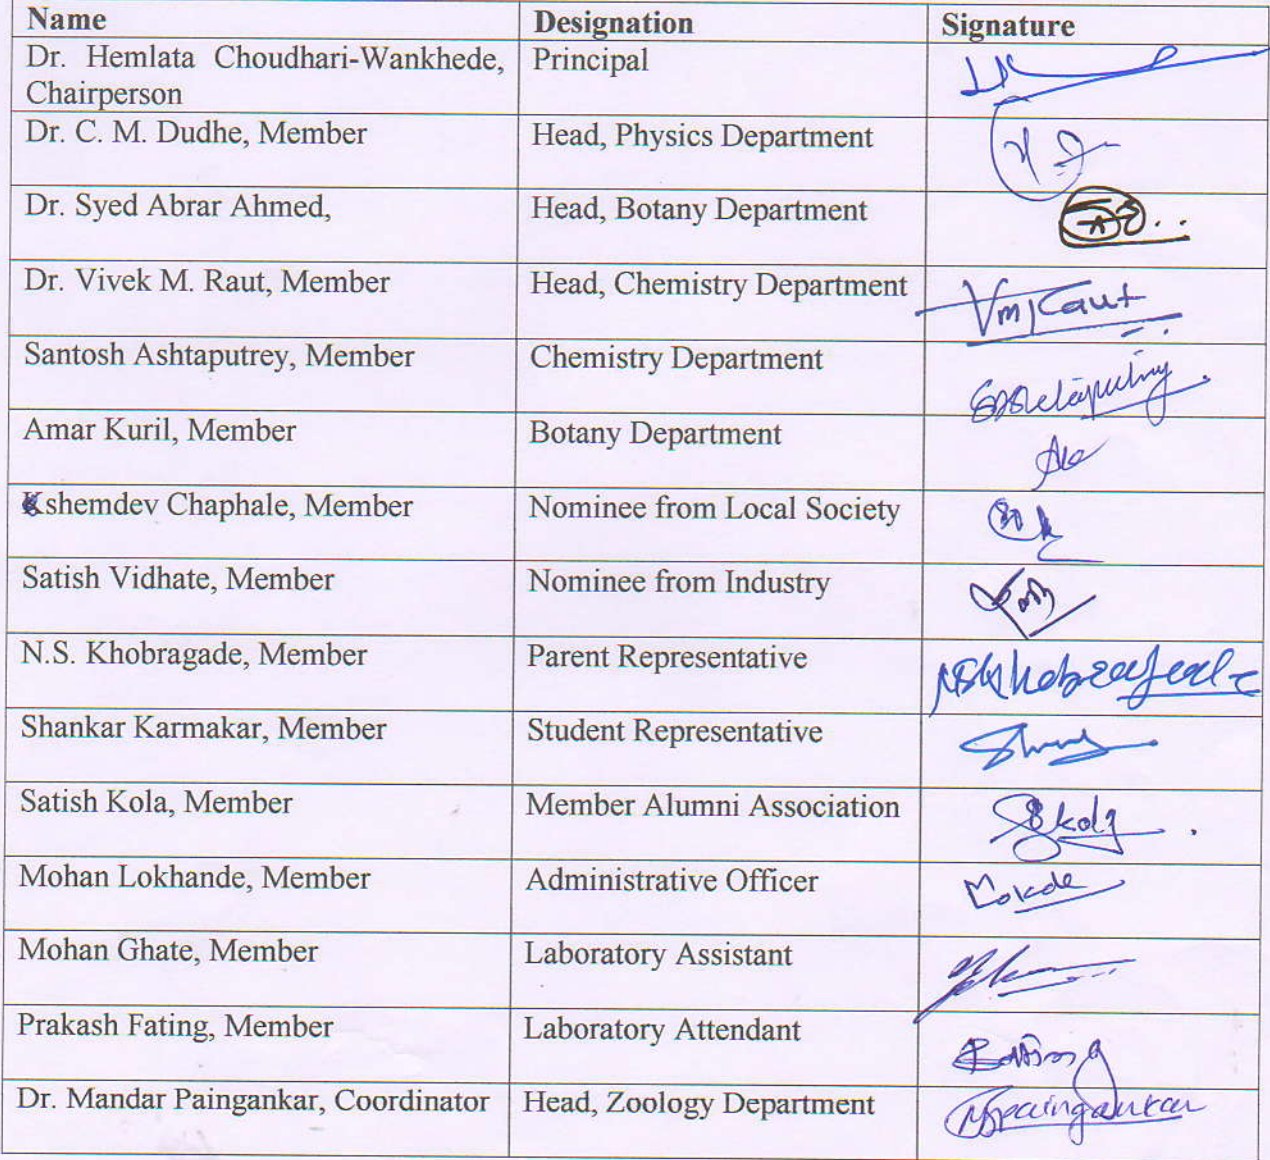 Name Designation Signature
Dr. Hemlata Choudhari-Wankhede, Principal
Chairperson
Dr. C. M. Dudhe, Member Head, Physics Department
Dr. Syed Abrar Ahmed, Head, Botany Department
Dr. Vivek M. Raut, Member Head, Chemistry Department VmRaut
Santosh Ashtaputrey, Member Chemistry Department
Amar Kuril, Member Botany Department
Kshemdev Chaphale, Member Nominee from Local Society
Satish Vidhate, Member Nominee from Industry
N.S. Khobragade, Member Parent Representative NSKhobragade
Shankar Karmakar, Member Student Representative
Satish Kola, Member Member Alumni Association Skola
Mohan Lokhande, Member Administrative Officer
Mohan Ghate, Member Laboratory Assistant
Prakash Fating, Member Laboratory Attendant
Dr. Mandar Paingankar, Coordinator Head, Zoology Department Mspaingankar